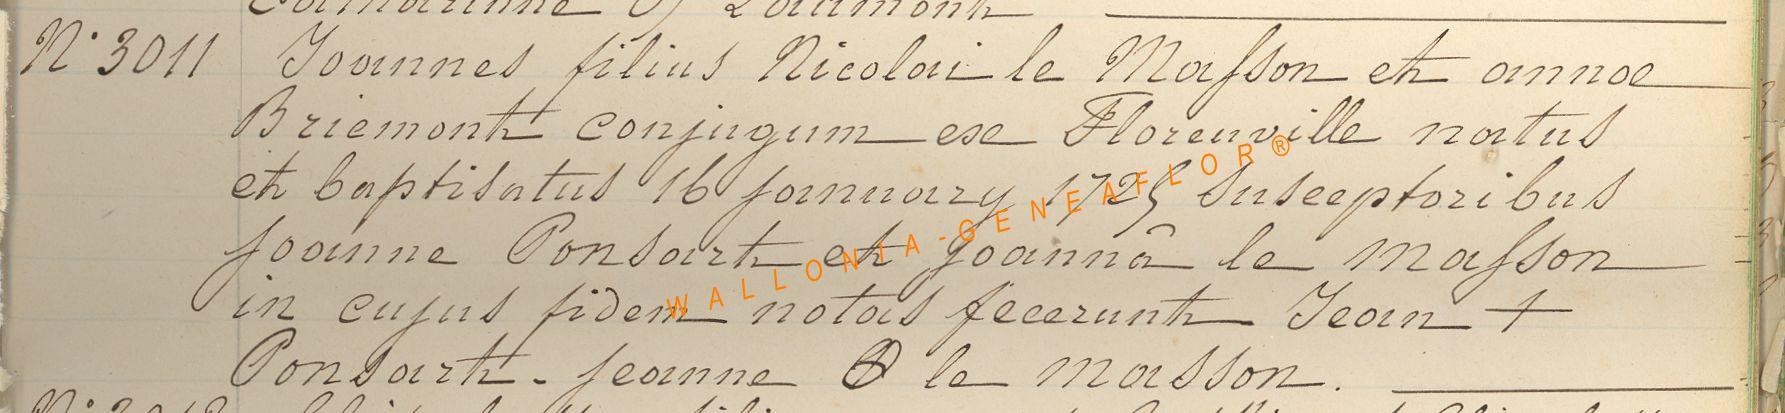 N° 3011 Joannes filius Nicolai le Masson et annae
Briemont conjugum ex Florenville natus
et baptisatus 16 january 1725 Susceptoribus
joanne Ponsart et joannâ le masson
in cujus fidem notas fecerunt Jean +
Ponsart - jeanne O le masson.
WALLONIA-GENEAFLOR®